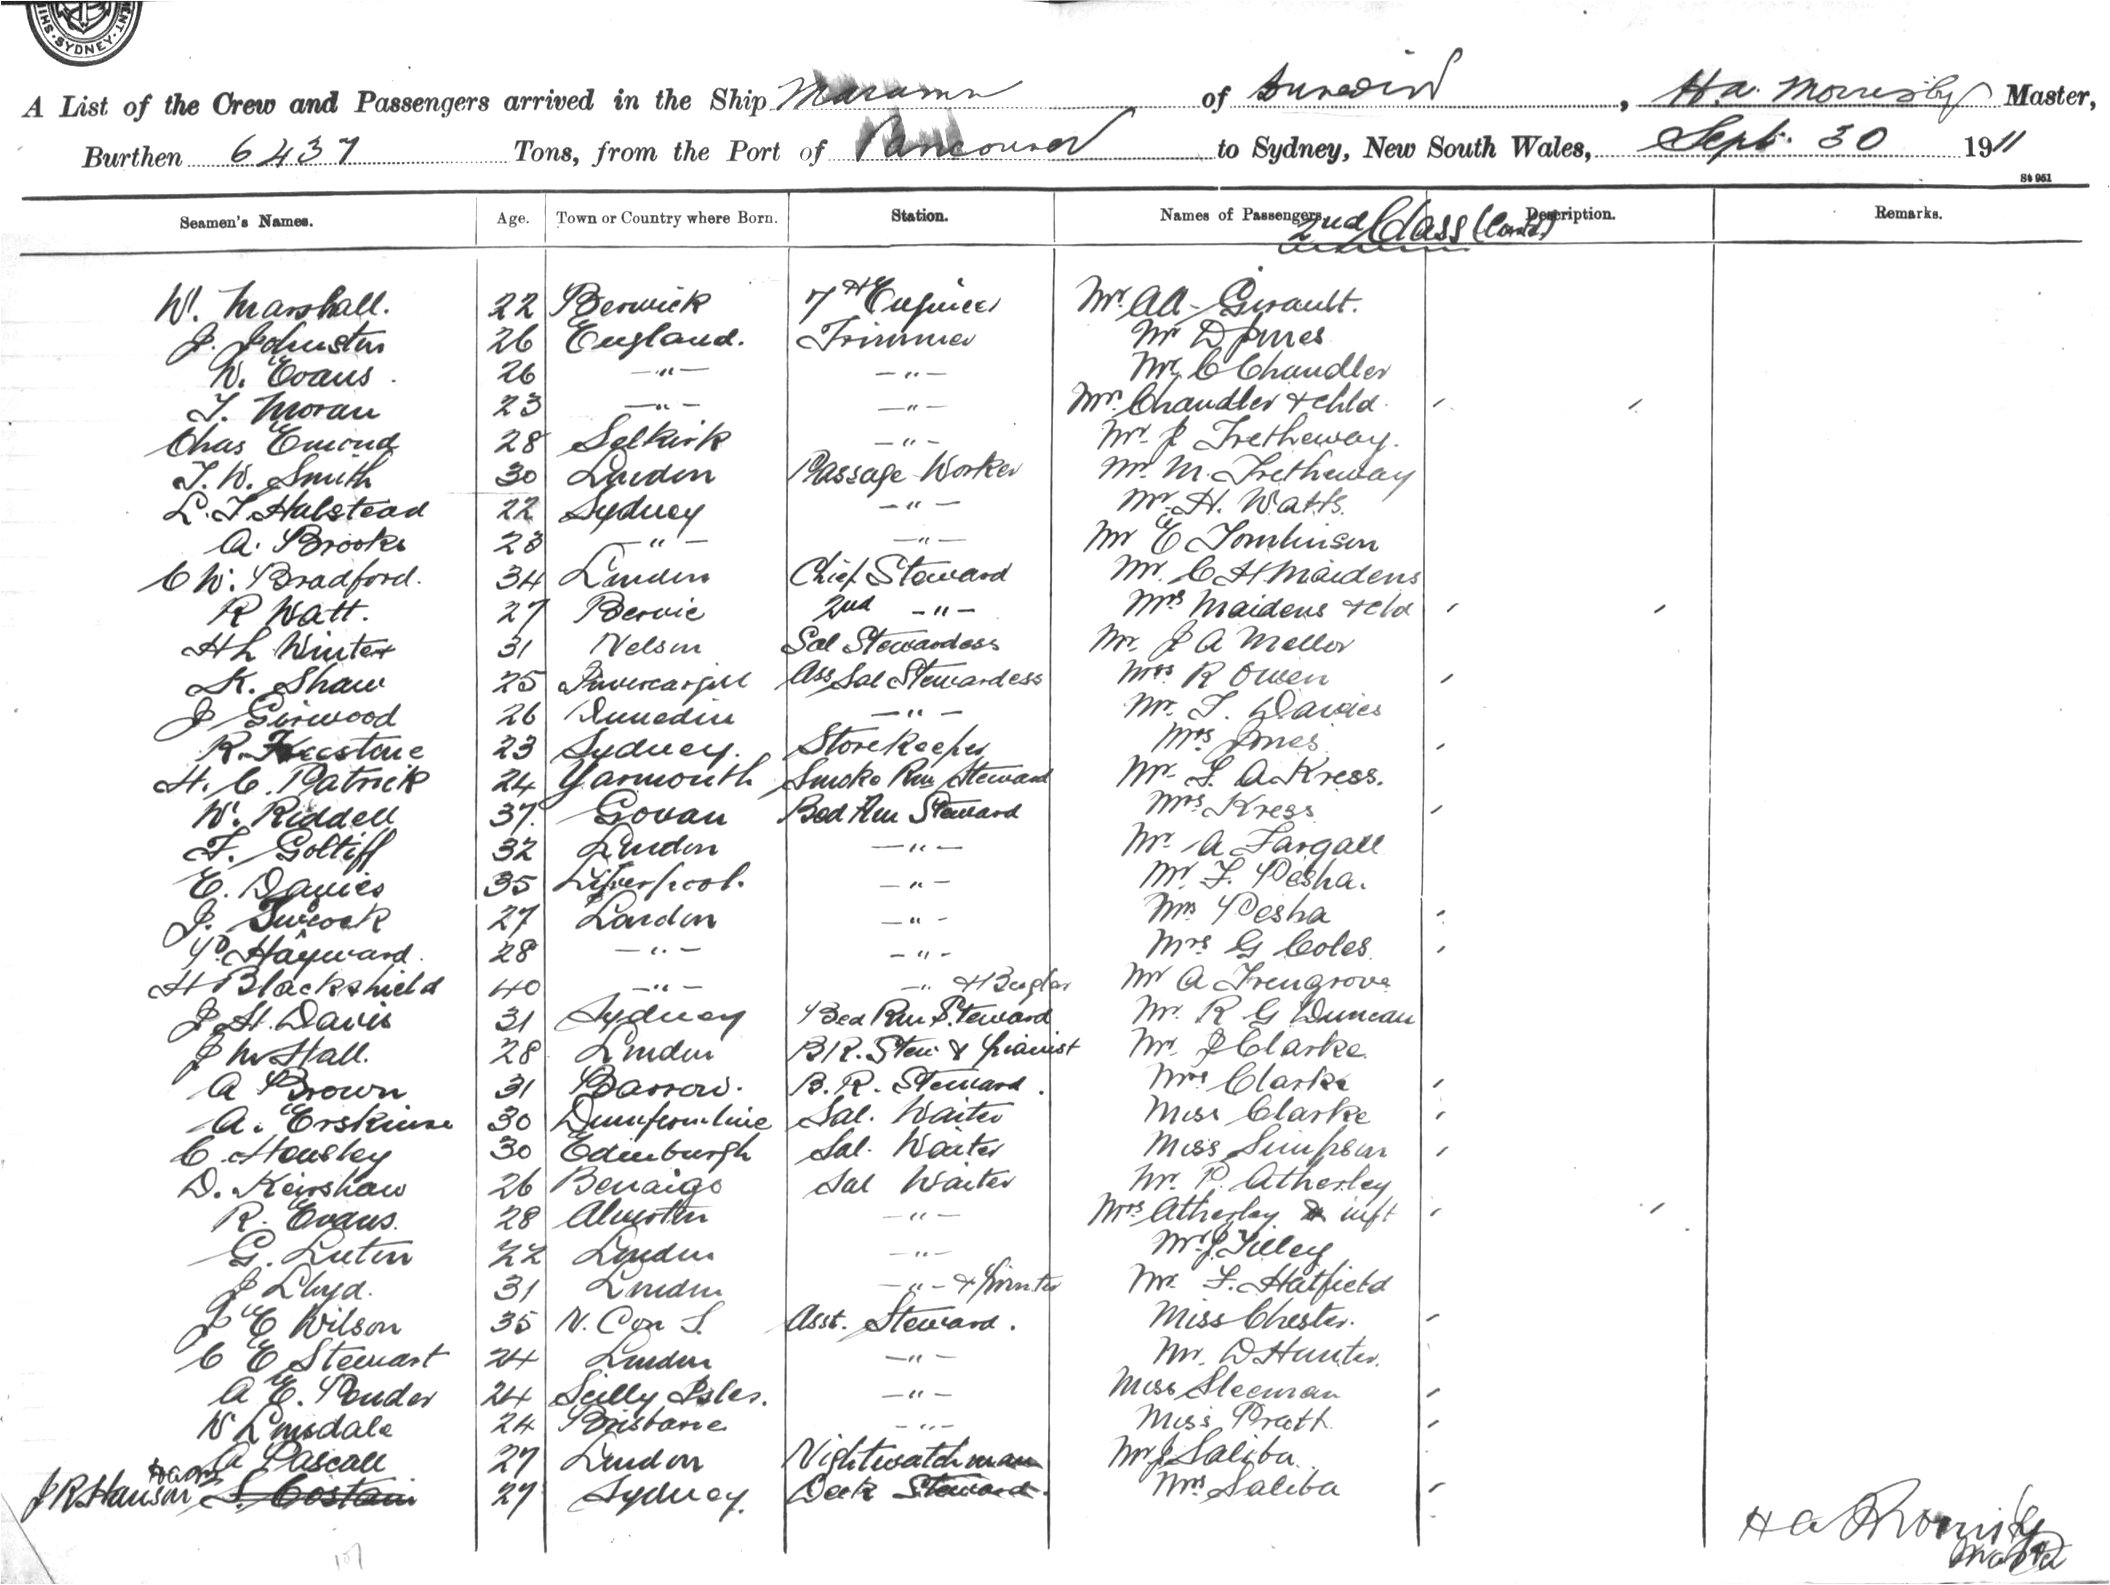 SYDNEY
A List of the Crew and Passengers arrived in the Ship Marama of Dunedin, H.A. Morrisby Master,
Burthen 6437 Tons, from the Port of Vancouver to Sydney, New South Wales, Sept. 30 1911
St 951
Seamen's Names. Age. Town or Country where Born. Station. Names of Passengers. Description. Remarks.
2nd Class (Contd)
W. Marshall. 22 Berwick 7th Engineer Mr. A A Girault.
J. Johnston 26 England. Trimmer Mr D Jones
W. Evans. 26 —"— —"— Mr C Chandler
T. Moran 23 —"— —"— Mrs. Chandler & chld.
Chas Emond 28 Selkirk —"— Mr. J Tretheway.
T. W. Smith 30 London Passage Worker Mr. M. Tretheway
L. T. Halstead 22 Sydney —"— Mr. H. Watts.
A. Brooks 23 —"— —"— Mr E Tomlinson
C W. Bradford. 34 London Chief Steward Mr. C H Maidens
R Watt. 27 Bervie 2nd —"— Mrs Maidens & cld
H L Winter 31 Nelson Sal Stewardess Mr. J A Mellor
K. Shaw 25 Invercargill Ass Sal Stewardess Mrs R Owen
J Girwood 26 Dunedin —"— Mr. T. Davies
R. 23 Sydney. Storekeeper Mrs Jones
H. C. Patrick 24 Yarmouth Smoke Rm Steward Mr. L. A. Kress.
W. Riddell 37. Govan Bed Rm Steward Mrs Kress
F. Goltiff 32 London —"— Mr. A Fargall
E. Davies 35 Liverpool. —"— Mr. F. Pesha.
J. 27 London —"— Mrs Pesha
P Hayward. 28 —"— —"— Mrs G Coles
H Blackshield 40 —"— —"— & Bugler Mr A Trengrove
J. H. Davis 31 Sydney Bed Rm Steward Mr. R G Duncan
J M Hall. 28 London B R. Stew & pianist Mr. J Clarke.
A Brown 31 Barrow. B. R. Steward. Mrs Clarke
A. Erskine 30 Dunfermline Sal. Waiter Miss Clarke
C. Housley 30 Edinburgh Sal. Waiter Miss Simpson
D. Kershaw 26 Benaigo Sal Waiter Mr. P. Atherley
R. Evans. 28 —"— Mrs Atherley & inft
G. Luton 22 London —"— Mr. J Tilley
J Lloyd. 31 London —"— & printer Mr. F. Hatfield
J E Wilson 35 N. Con S. Asst. Steward. Miss Chester.
C E Stewart 24 London —"— Mr. D Hunter.
A E. Pender 24 Scilly Isles. —"— Miss Sleeman
W Lonsdale 24 Brisbane —"— Miss Pratt
A Pascall 27 London Nightwatchman Mr J Saliba
J R Hanson S. Costain 27 Sydney. Deck Steward. Mrs Saliba
H A Morrisby
Master
107